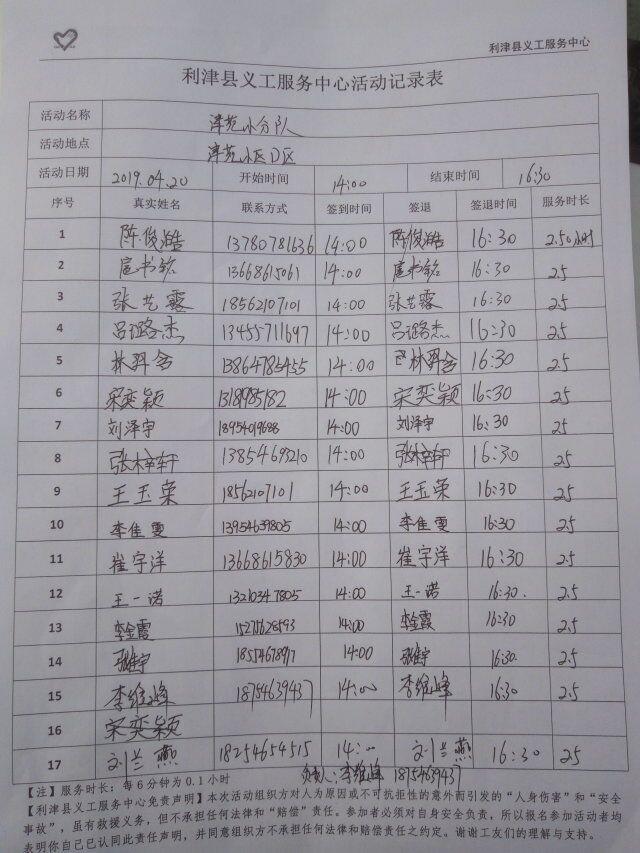 利津县义工服务中心
利津县义工服务中心活动记录表
活动名称 津苑小分队
活动地点 津苑小区D区
活动日期 2019.04.20 开始时间 14:00 结束时间 16:30
序号 真实姓名 联系方式 签到时间 签退 签退时间 服务时长
1 陈俊澔 13780781636 14:00 陈俊澔 16:30 2.50小时
2 扈书铭 13668615061 14:00 扈书铭 16:30 2.5
3 张艺霖 18562107101 14:00 张艺霖 16:30 2.5
4 吕璐杰 13455711697 14:00 吕璐杰 16:30 2.5
5 林羿含 13864785455 14:00 林羿含 16:30 2.5
6 宋奕颖 1318985182 14:00 宋奕颖 16:30 2.5
7 刘泽宇 18954019688 14:00 刘泽宇 16:30 2.5
8 张梓轩 13854693210 14:00 张梓轩 16:30 2.5
9 王玉荣 18562107101 14:00 王玉荣 16:30 2.5
10 李佳雯 13954639805 14:00 李佳雯 16:30 2.5
11 崔宇洋 13668615830 14:00 崔宇洋 16:30 2.5
12 王一诺 13210347805 14:00 王一诺 16:30. 2.5
13 李金霞 14:00 李金霞 16:30 2.5
14 14:00 16:30. 2.5
15 李维峰 18754639437 14:00 李维峰 16:30 2.5
16 宋奕颖
17 刘兰燕 18254654515 14:00 刘兰燕 16:30 2.5
负责人：李维峰 18754639437
【注】服务时长：每6分钟为0.1小时
【利津县义工服务中心免责声明】本次活动组织方对人为原因或不可抗拒性的意外而引发的“人身伤害”和“安全
事故”，虽有救援义务，但不承担任何法律和“赔偿”责任。参加者必须对自身安全负责，所以报名参加活动者均
表明你自己已认同此责任声明，并同意组织方不承担任何法律和赔偿责任之约定。谢谢工友们的理解与支持。